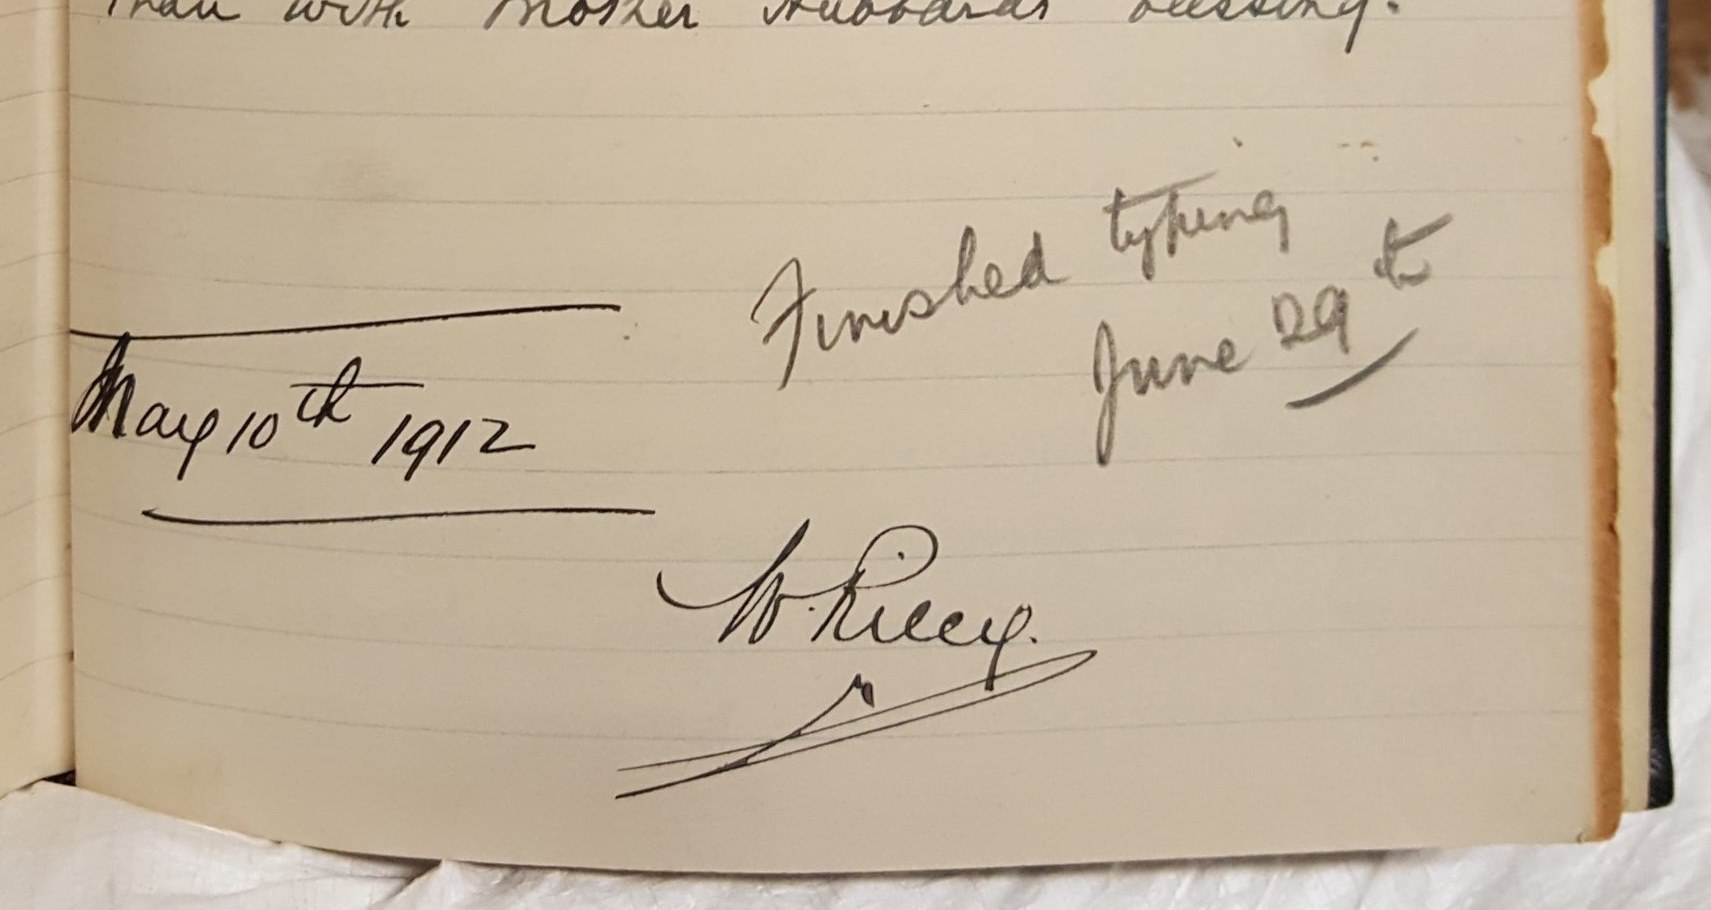 than with Mother Hubbard's blessing.
Finished typing
June 29th
May 10th 1912
W. Riley.